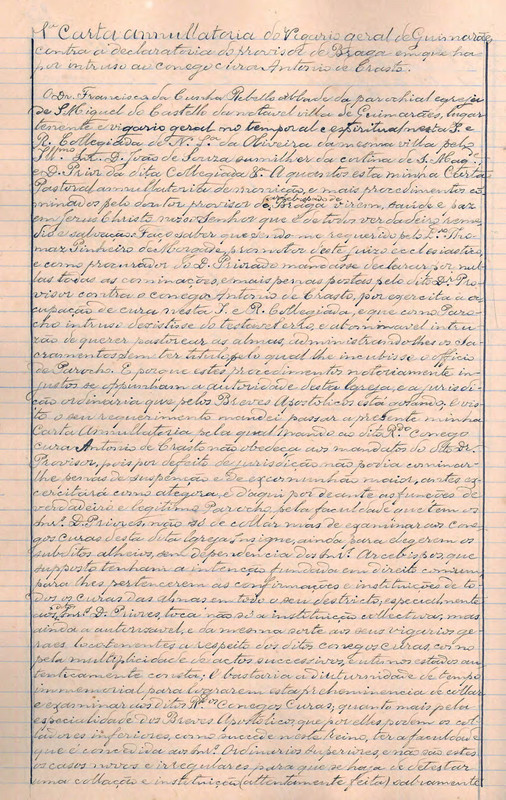 1ª Carta annullatoria do Vigario geral de Guimarães,
contra a declaratoria do provisor de Braga em que ha-
por intruso ao conego cura Antonio de Crasto.
O Dr. Francisco da Cunha Rebello Abbade da parochial egreja
de S. Miguel do Castello da notavel villa de Guimarães, lugar
tenente e vigario geral no temporal e espiritual nesta I. e
R. Collegiada de N. Sra. da Oliveira da mesma villa pelo
Illmo. Snr. D. João de Souza sumilher da cortina de S. Mag.
e D. Prior da dita Collegiada &ª. A quantos esta minha Carta
Pastoral annullatoria de monição, e mais procedimentos co-
minados pelo doutor provisor do arcebispado de Braga virem, saude e paz
em Jesus Christo nosso Senhor que é de todos verdadeiro reme-
dio e salvação. Faço saber que sendo-me requerido pelo Tho-
maz Pinheiro de promotor deste juizo ecclesiastico,
e como procurador do D. Priorado mandasse declarar por nul-
las todas as cominações, e mais penas postas pelo dito Dr. Pro-
visor contra o conego Antonio de Crasto, por exercitar a oc-
cupação de cura nesta I. e R. Collegiada, e que como Paro-
cho intruso desistisse do erro, e abominavel intru-
zão de querer pastorear as almas, administrando-lhes os Sa-
cramentos sem ter titulo, pelo qual lhe incubisse o officio
de Parocho. E porque estes procedimentos notoriamente in-
justos se oppunham a autoridade desta Igreja, e a jurisdi-
ção ordinaria que pelos Breves Apostolicos está e vis-
to o seu requerimento mandei passar a presente minha
Carta Annullatoria pela qual mando ao dito Rdo. Conego
cura Antonio de Crasto não obedeça aos mandatos do dito Dr.
Provisor, pois por defeito de jurisdição não podia cominar-
lhe penas de suspenção e de excomunhão maior, antes ex-
ercitará como atégora, e daqui por deante as funcções de
verdadeiro e legitimo Parocho, pela faculdade que tem os
Snrs. D. Priores, não só de collar mas de examinar aos cone-
gos curas desta dita Igreja Insigne, ainda para regerem os
subditos alheios, sem dependencia dos Snrs. Arcebispos, que
supposto tenham a intenção fundada em direito comum,
para lhes pertencerem as confirmações e instituições de to-
dos os curas das almas em todo o seu destricto, especialmente
aos Snrs. D. Priores, toca não só a instituição collectiva, mas
ainda a autorizavel, e da mesma sorte aos seus vigarios ge-
raes, locotenentes a respeito dos ditos conegos curas, como
pela multiplicidade de actos successivos, e titulos estados au-
tenticamente consta; E bastaria a diuturnidade de tempo
immemorial, para lograrem esta preheminencia de collar
e examinar aos ditos Rdos. Conegos Curas, quanto mais pela
especialidade dos Breves Apostolicos, que por elles podem os col-
ladores inferiores, como succede neste reino, ter a faculdade
que é concedida aos Snrs. Ordinarios Superiores, e não são estes
os casos novos e irregulares para que se haja de detestar
uma collação e instituição (attentamente feita) salvamente